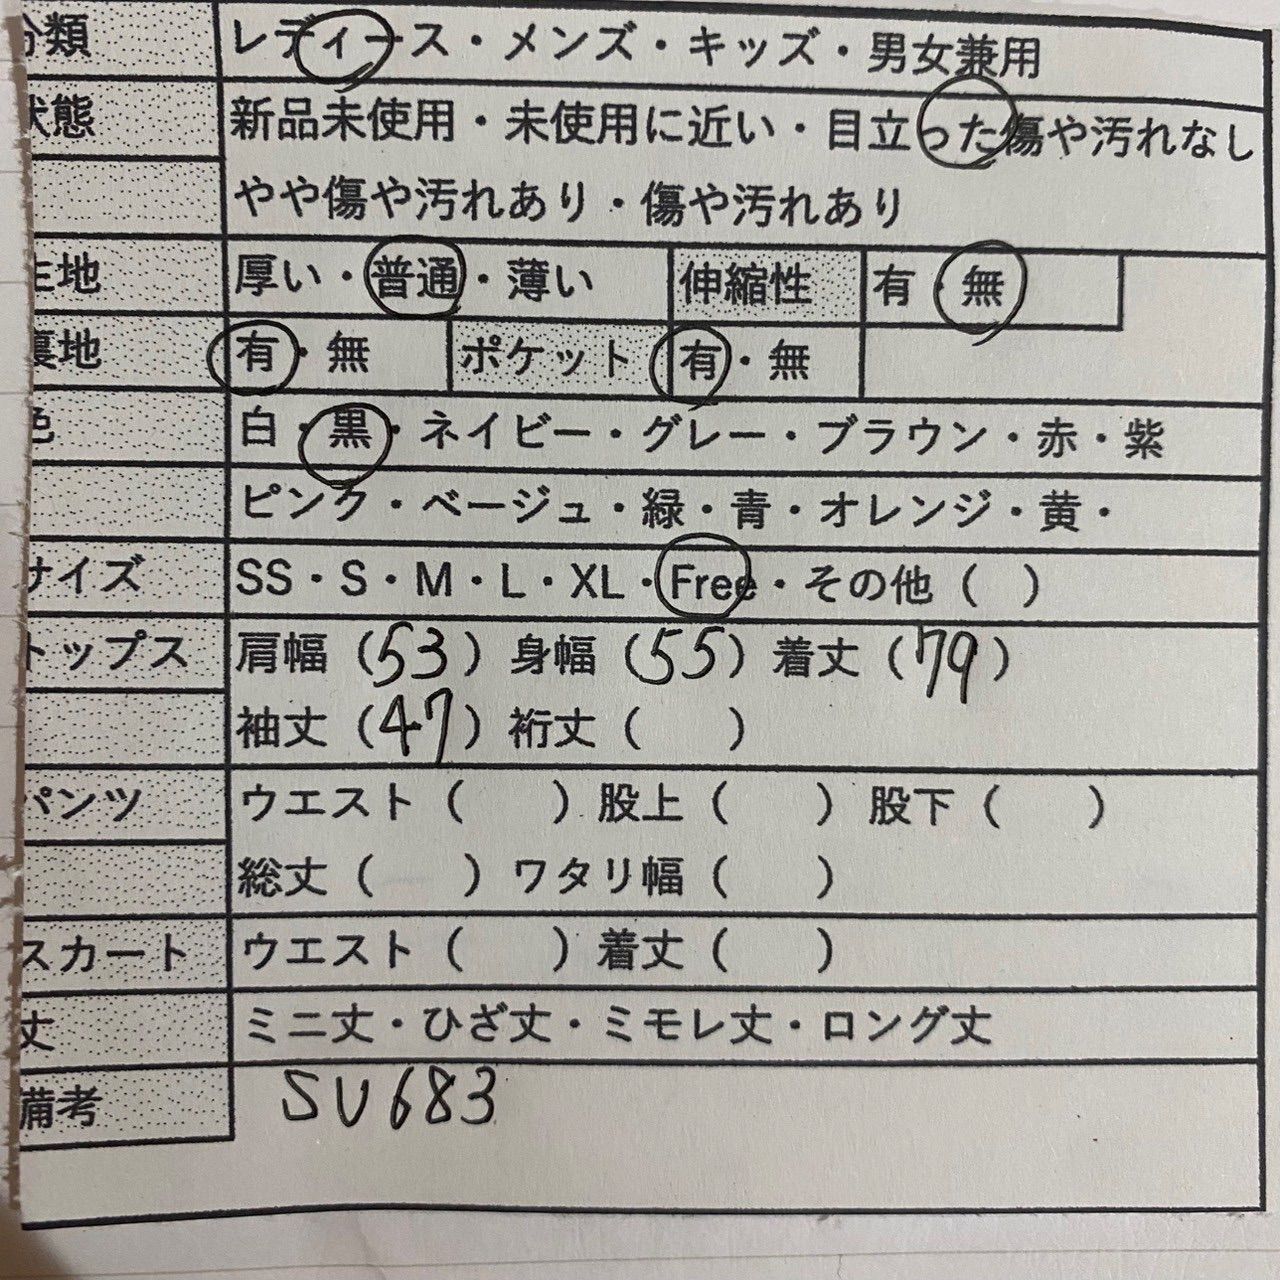 分類 レディース・メンズ・キッズ・男女兼用
状態 新品未使用・未使用に近い・目立った傷や汚れなし
やや傷や汚れあり・傷や汚れあり
生地 厚い・普通・薄い 伸縮性 有・無
裏地 有・無 ポケット 有・無
色 白・黒・ネイビー・グレー・ブラウン・赤・紫
ピンク・ベージュ・緑・青・オレンジ・黄・
サイズ SS・S・M・L・XL・Free・その他（ ）
トップス 肩幅（53）身幅（55）着丈（79）
袖丈（47）裄丈（ ）
パンツ ウエスト（ ）股上（ ）股下（ ）
総丈（ ）ワタリ幅（ ）
スカート ウエスト（ ）着丈（ ）
丈 ミニ丈・ひざ丈・ミモレ丈・ロング丈
備考 SU683